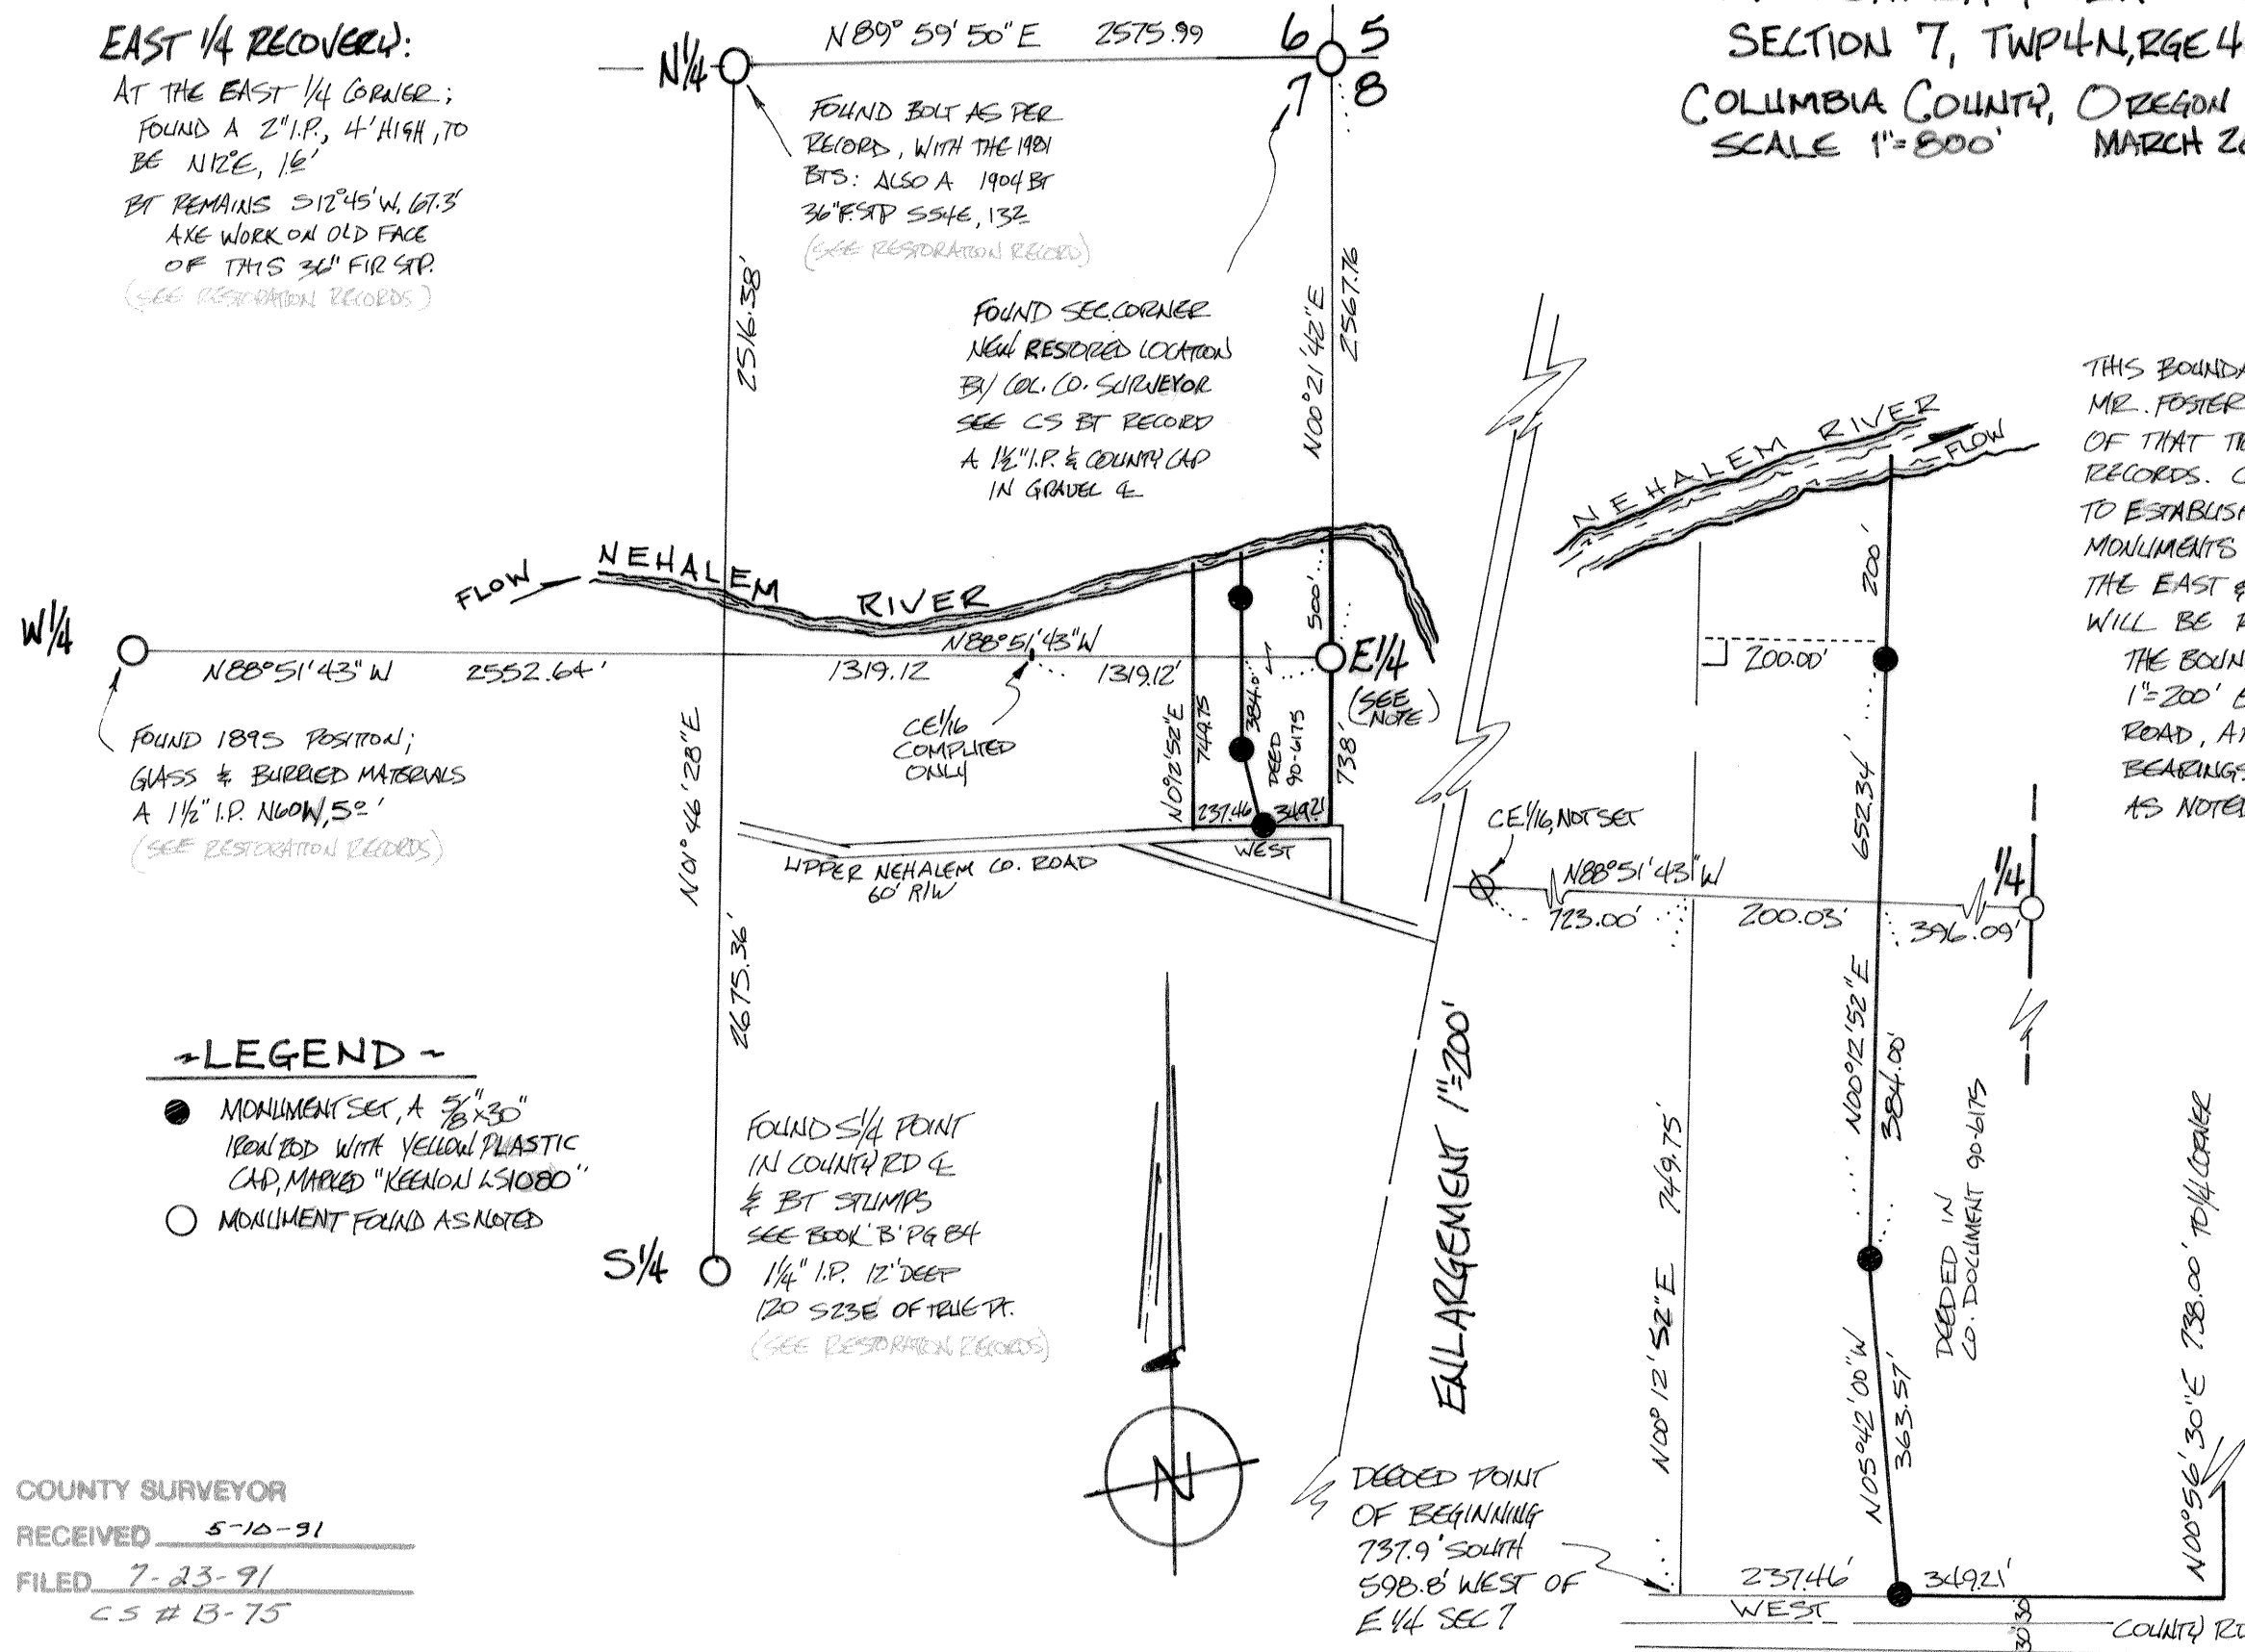 EAST 1/4 RECOVERY:
AT THE EAST 1/4 CORNER;
FOUND A 2" I.P., 4' HIGH, TO
BE N12°E, 1.6'
BT REMAINS S12°45'W, 67.3'
AXE WORK ON OLD FACE
OF THIS 36" FIR STP.
(SEE RESTORATION RECORDS)
N 89° 59' 50" E 2575.99
N 1/4
6 5
7 8
FOUND BOLT AS PER
RECORD, WITH THE 1981
BTS: ALSO A 1904 BT
36" F.STP S54E, 132
(SEE RESTORATION RECORD)
SECTION 7, TWP4N, RGE 4
COLUMBIA COUNTY, OREGON
SCALE 1"=800' MARCH 26
2516.38'
N00°21'42"E
2567.76
FOUND SEC. CORNER
NEW RESTORED LOCATION
BY COL. CO. SURVEYOR
SEE CS BT RECORD
A 1½" I.P. & COUNTY CAP
IN GRAVEL ℄
THIS BOUNDA
MR. FOSTER
OF THAT
RECORDS.
TO ESTABLISH
MONUMENTS
THE EAST &
WILL BE
THE BOUN
1"=200'
ROAD,
BEARINGS
AS NOTED
FLOW
NEHALEM RIVER
W 1/4
N88°51'43"W 2552.64'
1319.12
N88°51'43"W
1319.12'
500'
E 1/4
(SEE NOTE)
FOUND 1895 POSITION;
GLASS & BURRIED MATERIALS
A 1½" I.P. N60W, 5.0'
(SEE RESTORATION RECORDS)
CE 1/16
COMPUTED
ONLY
N0°12'52"E
749.75
384.0'
DEED
90-6175
738'
237.46 349.21
WEST
UPPER NEHALEM CO. ROAD
60' R/W
N01°46'28"E
2675.36'
~LEGEND~
MONUMENT SET, A 5/8"x30"
IRON ROD WITH YELLOW PLASTIC
CAP, MARKED "KEENON LS1080"
MONUMENT FOUND AS NOTED
S 1/4
FOUND S 1/4 POINT
IN COUNTY RD ℄
& BT STUMPS
SEE BOOK 'B' PG 84
1¼" I.P. 12" DEEP
S23E OF TRUE PT.
(SEE RESTORATION RECORDS)
N
ENLARGEMENT 1"=200'
NEHALEM RIVER
FLOW
200'
200.00'
652.34'
CE 1/16, NOT SET
N88°51'43"W
1/4
723.00' 200.03' 396.09'
N00°12'52"E
384.00'
N00°12'52"E 749.75'
DEEDED IN
CO. DOCUMENT 90-6175
N05°42'00"W
363.57'
N00°56'30"E 738.00' TO 1/4 CORNER
DEEDED POINT
OF BEGINNING
737.9' SOUTH
598.8' WEST OF
E 1/4 SEC 7
237.46' 349.21'
WEST
30' 30'
COUNTY RD
COUNTY SURVEYOR
RECEIVED 5-10-91
FILED 7-23-91
CS # B-75